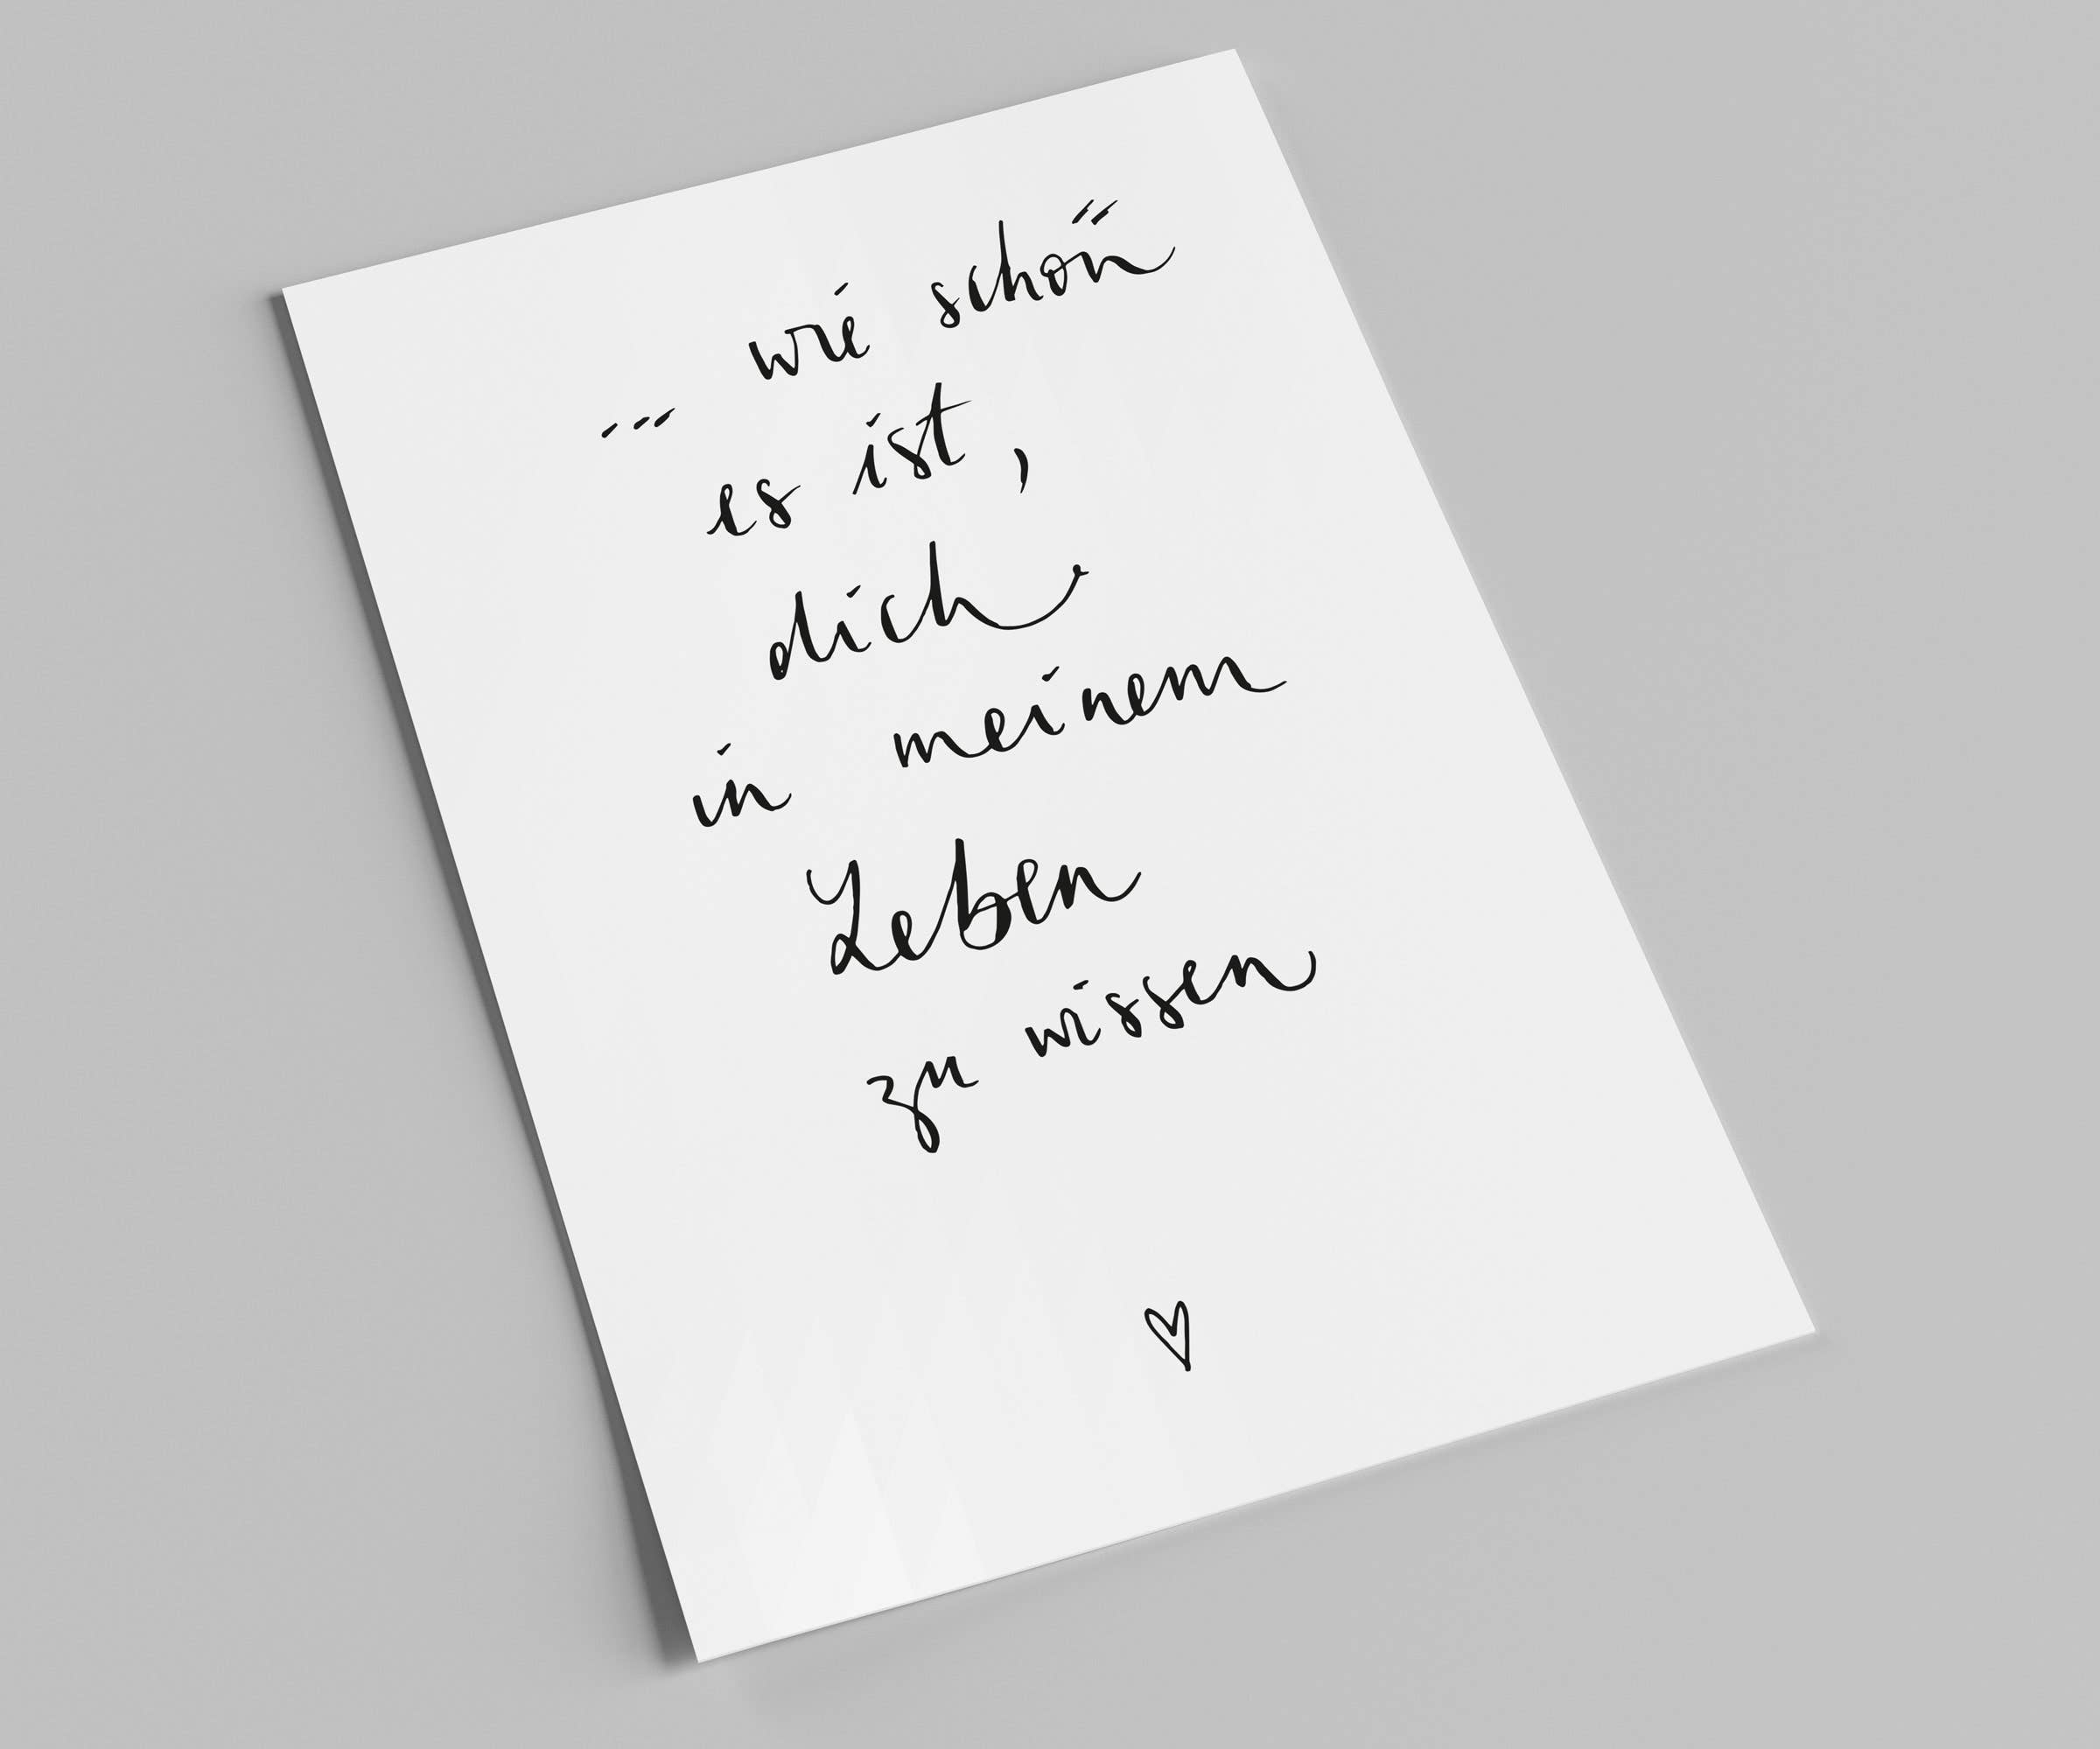 ... wie schön
es ist,
dich
in meinem
Leben
zu wissen